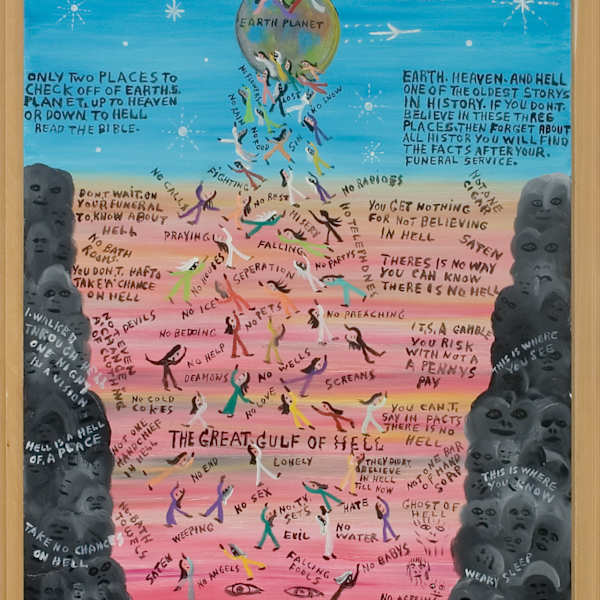 EARTH PLANET
ONLY TWO PLACES TO
CHECK OFF OF EARTH.S.
PLANET. UP TO HEAVEN
OR DOWN TO HELL
READ THE BIBLE.
EARTH. HEAVEN. AND HELL
ONE OF THE OLDEST STORYS
IN HISTORY. IF YOU DON.T.
BELIEVE IN THESE THREE
PLACES. THEN FORGET ABOUT
ALL HISTOR YOU WILL FIND
THE FACTS AFTER YOUR.
FUNERAL SERVICE.
LOST
NO SNOW
NO FOOD
SIN
FIGHTING
NO CALLS
NO REST
NO RADIOES
NOT ONE
CIGAR
DON.T. WAIT. ON
YOUR FUNERAL
TO KNOW ABOUT
HELL
MISERY
NO TELEPHONES
YOU GET NOTHING
FOR NOT BELIEVING
IN HELL
SATEN
PRAYING
FALLING
NO BATH
ROOMS.
NO PARTYS
YOU DON.T. HAFTO
TAKE A CHANCE
ON HELL
NO ROBES
SEPERATION
THERES IS NO WAY
YOU CAN KNOW
THERE IS NO HELL
NO ICE
NO PETS
NO PREACHING
DEVILS
NO BEDDING
I. WALKED
THROUGH HELL
ONE NIGHT
IN A VISION
OF CLOTHING
IT,S, A GAMBLE
YOU RISK
WITH NOT A
A PENNYS
PAY
THIS IS WHERE
YOU SEE
NO HELP
NO WELLS
DEAMONS
SCREANS
NO COLD
COKES
NO LOVE
YOU CAN,T,
SAY IN FACTS
THERE IS NO
HELL
THE GREAT GULF OF HELL
NOT ONE
HANDCHIEF
IN HELL
HELL IS A HELL
OF, A PLACE
NO END
LONELY
THEY DIDNT
BELIEVE
IN HELL
TILL NOW
NOT ONE BAR
OF HAND
SOAP
THIS IS WHERE
YOU KNOW
NO SEX
NO TV
SETS
HATE
GHOST OF
HELL
NO BATH
TOWELS
WEEPING
EVIL
NO
WATER
TAKE NO CHANCES
ON HELL
SATEN
NO ANGELS
FALLING
FOOLS
NO BABYS
WEARY SLEEP